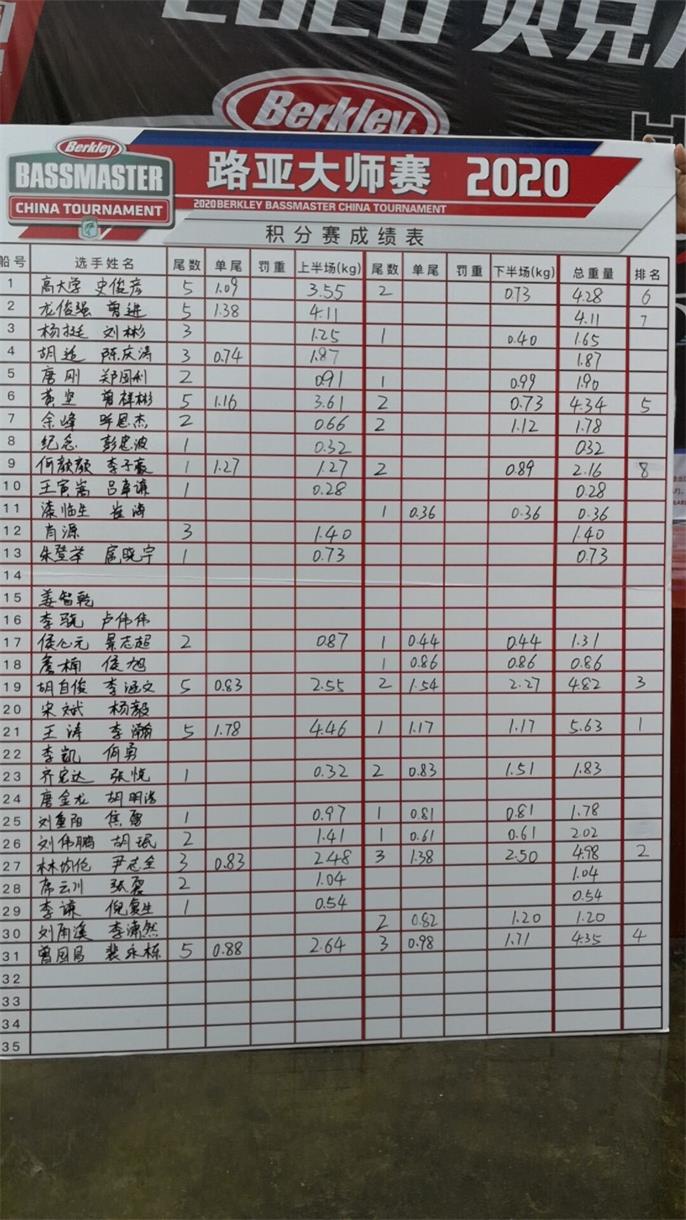 2020 贝克
Berkley
Berkley
BASSMASTER
CHINA TOURNAMENT
路亚大师赛 2020
2020 BERKLEY BASSMASTER CHINA TOURNAMENT
积分赛成绩表
船号 选手姓名 尾数 单尾 罚重 上半场(kg) 尾数 单尾 罚重 下半场(kg) 总重量 排名
1 高大学 史俊彦 5 1.09 3.55 2 0.73 4.28 6
2 龙俊强 曾进 5 1.38 4.11 4.11 7
3 杨挺 刘彬 3 1.25 1 0.40 1.65
4 胡延 陈庆涛 3 0.74 1.87 1.87
5 唐刚 郑国利 2 0.91 1 0.99 1.90
6 黄坚 曾祥彬 5 1.16 3.61 2 0.73 4.34 5
7 余峰 思杰 2 0.66 2 1.12 1.78
8 纪念 彭忠波 1 0.32 0.32
9 何颜颜 李子豪 1 1.27 1.27 2 0.89 2.16 8
10 王寅嵩 吕卓谦 1 0.28 0.28
11 漆临生 崔海 1 0.36 0.36 0.36
12 肖源 3 1.40 1.40
13 朱登举 扈晓宇 1 0.73 0.73
14
15 姜智乾
16 李骁 卢伟伟
17 侯心元 景志超 2 0.87 1 0.44 0.44 1.31
18 詹楠 侯旭 1 0.86 0.86 0.86
19 胡自俊 李涵文 5 0.83 2.55 2 1.54 2.27 4.82 3
20 宋斌 杨毅
21 王涛 李瀚 5 1.78 4.46 1 1.17 1.17 5.63 1
22 李凯 何勇
23 齐宏达 张悦 1 0.32 2 0.83 1.51 1.83
24 唐金龙 胡明浩
25 刘重阳 焦磊 1 0.97 1 0.81 0.81 1.78
26 刘伟鹏 胡珉 2 1.41 1 0.61 0.61 2.02
27 林均伦 尹志全 3 0.83 2.48 3 1.38 2.50 4.98 2
28 席云川 张磊 2 1.04 1.04
29 李谦 倪复生 1 0.54 0.54
30 刘雨溪 李潇然 2 0.82 1.20 1.20
31 曾国昌 裴永栋 5 0.88 2.64 3 0.98 1.71 4.35 4
32
33
34
35